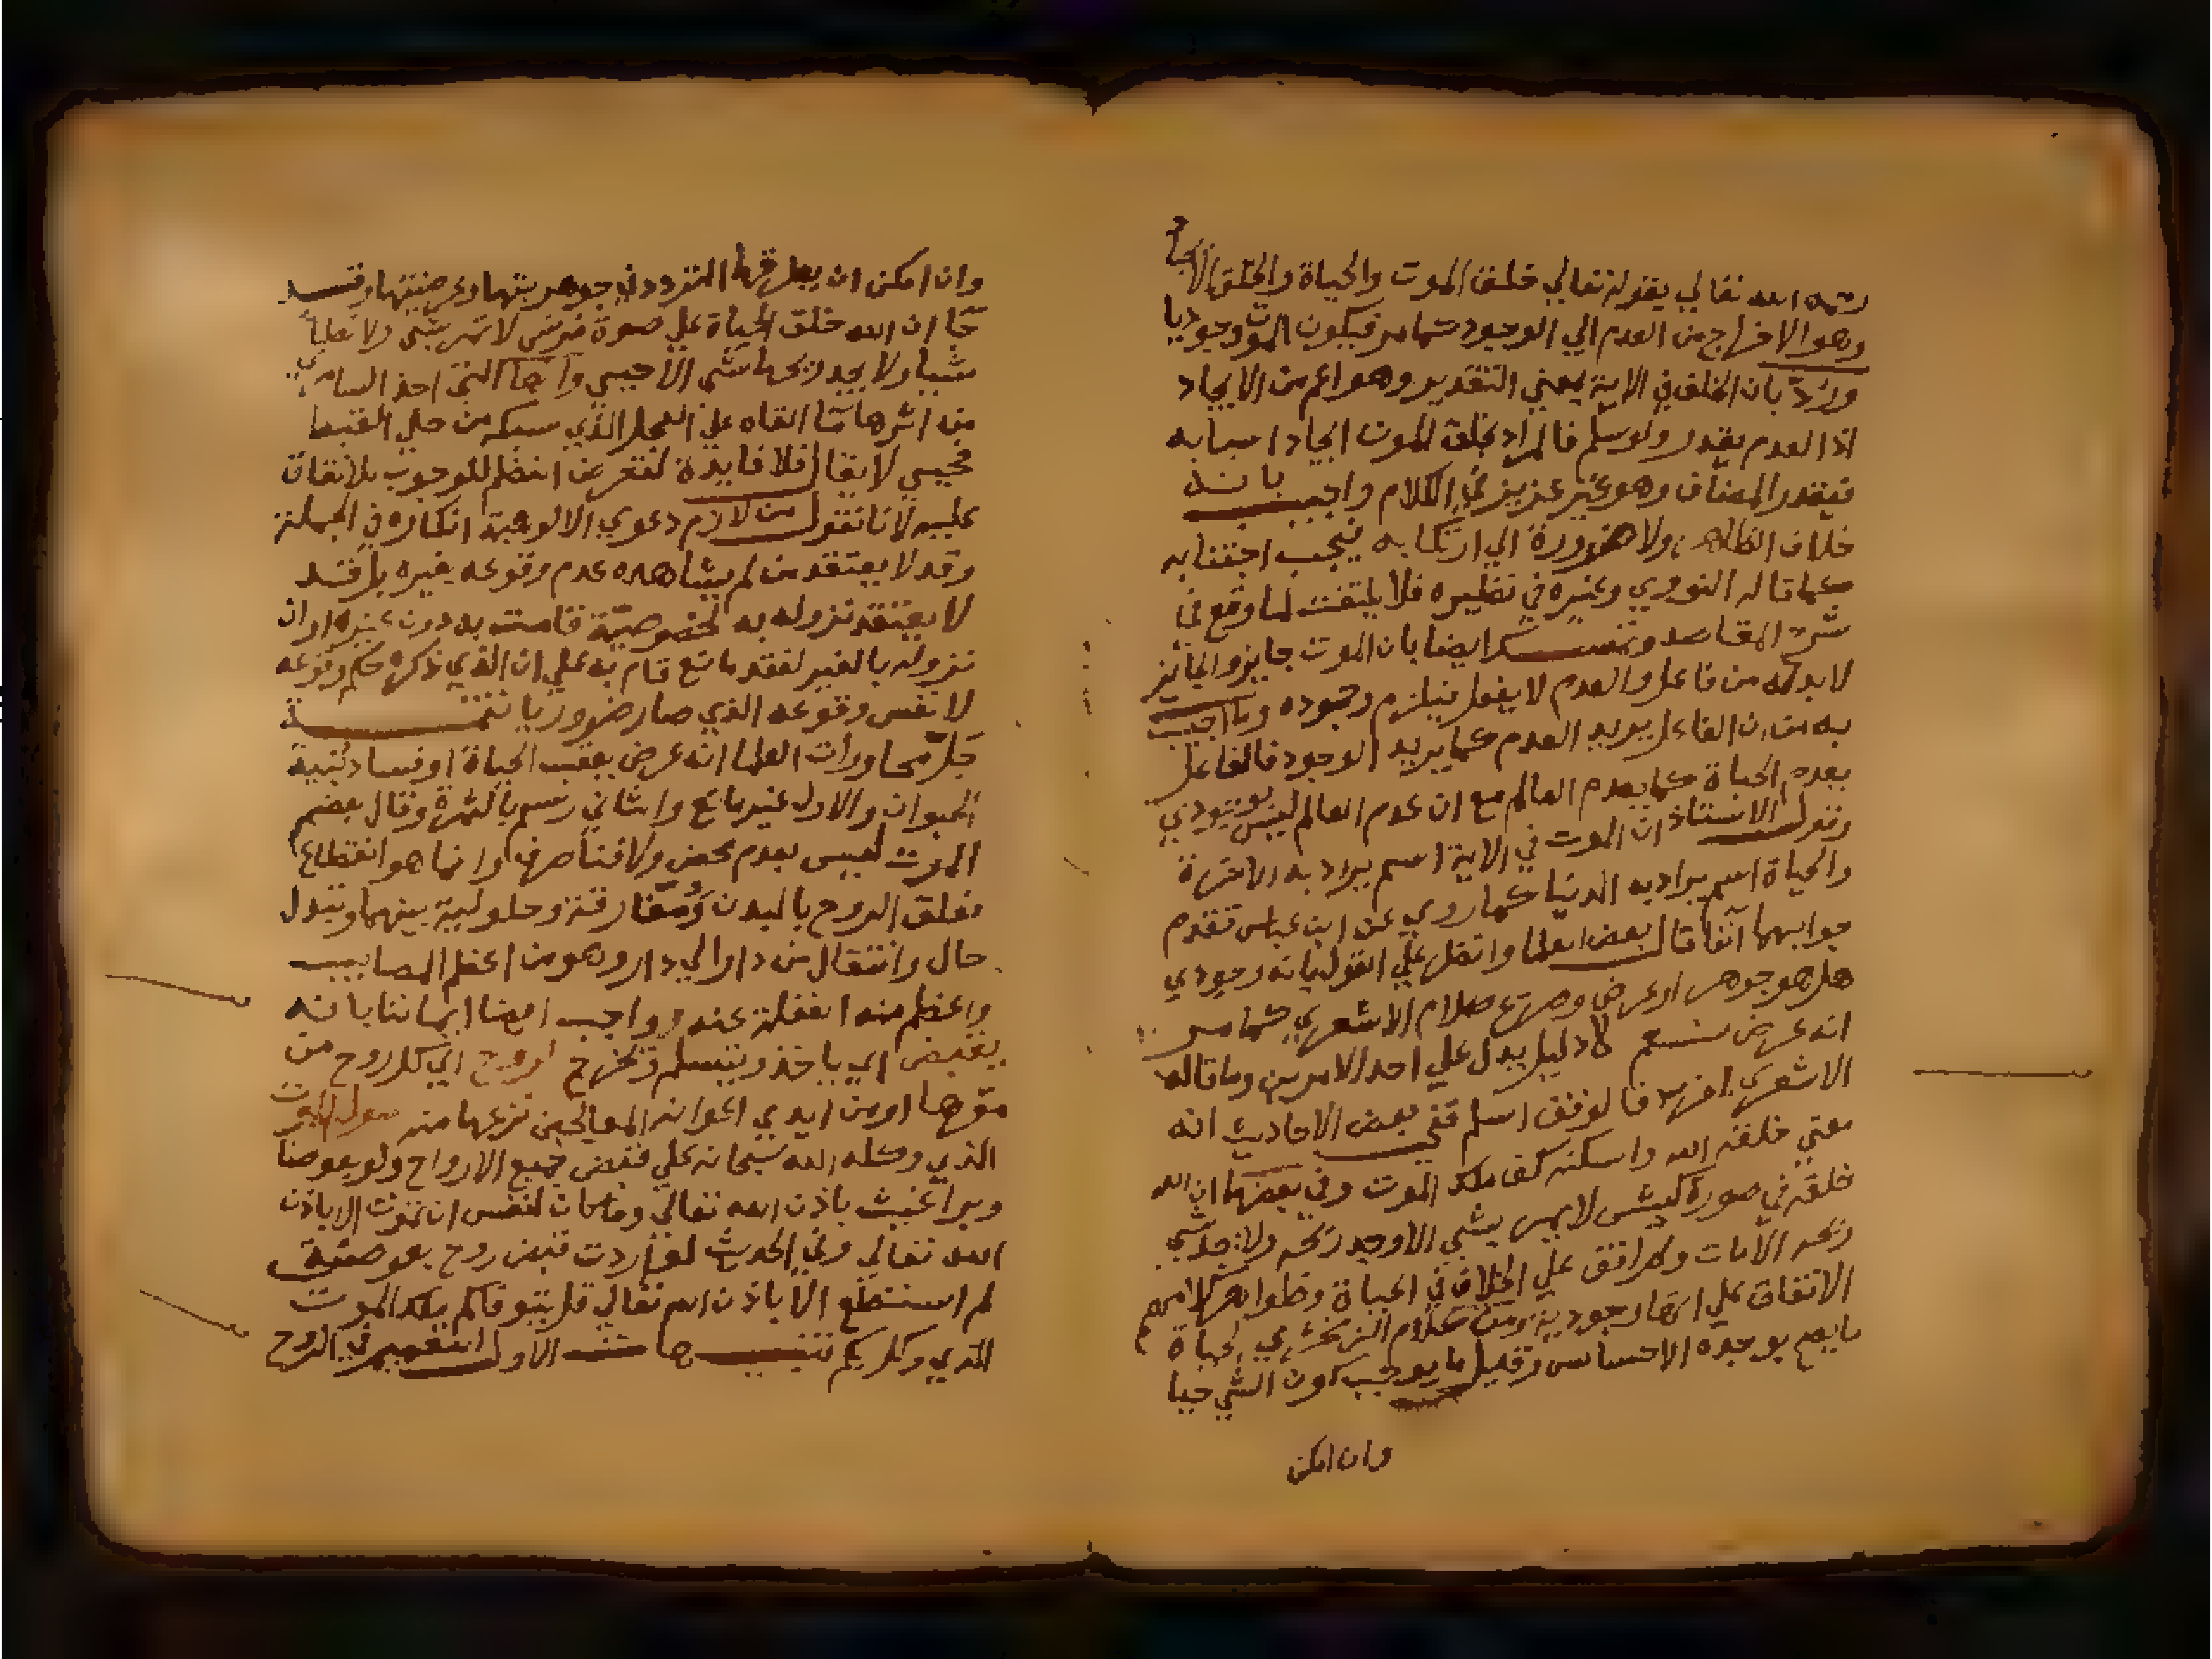 رحمه الله تعالي بقوله تعالي خلق الموت والحياة والخلق الايجاد
وهو الاخراج من العدم الي الوجود كما مر فيكون الموت وجوديا
ورد بان الخلق في الاية بمعني التقدير وهو اعم من الايجاد
اذ العدم يقدر ولو سلم فالمراد بخلق الموت ايجاد اسبابه
فيقدر المضاف وهو غير عزيز في الكلام واجيب بانه
خلاف الظاهر ولا ضرورة الي ارتكابه فيجب اجتنابه
كما قاله النووي وغيره في نظيره فلا يلتفت لما وقع في
شرح المقاصد وتمسك ايضا بان الموت جايز والجائز
لا بد له من فاعل والعدم لا يفعل فيلزم وجوده وما اجيب
به من ان الفاعل يريد العدم كما يريد الوجود فالفاعل
يعدم الحياة كما يعدم العالم مع ان عدم العالم ليس بوجودي
وقول الاستاذ ان الموت في الاية اسم يراد به الاخرة
والحياة اسم يراد به الدنيا كما روي عن ابن عباس تقدم
جوابهما آنفا قال بعض العلما وانظر علي القول بانه وجودي
هل هو جوهر او عرض وصرح كلام الاشعري كما مر
انه عرض نعم لا دليل يدل علي احد الامرين وما قاله
الاشعري فالوقف اسلم ففي بعض الاحاديث انه
معني خلقه الله واسكنه كف ملك الموت وفي بعضها ان الله
خلقه في صورة كبش لا يمر بشي الا وجد ريحه ولا يجد شي
ريحه الا مات ولم اقف علي الخلاف في الحياة وظواهر كلامهم
الاتفاق علي انها وجودية ومن كلام الزمخشري الحياة
ما يصح بوجوده الاحساس وقيل ما يوجب كون الشي حيا
وان امكن
وان امكن ان يطرقها التردد في جوهريتها وعرضيتها وقد
جا ان الله خلق الحياة علي صورة فرس لا تمر بشي ولا تطا
شيا ولا يجد ريحها شي الا حيي وانها التي اخذ السامري
من اثرها شا القاه علي العجل الذي سبكه من حلي القبط
فحيي لا يقال فلا فايدة لتعرض الناظم للوجوب للاتفاق
عليه لانا نقول من لازم دعوي الالوهية انكاره في الجملة
وقد لا يعتقد من لم يشاهده عدم وقوعه بغيره بل قد
لا يعتقد نزوله به لخصوصية قامت به دون غيره او ان
نزوله بالغير لفقد مانع قام به علي ان الذي ذكره حكم وقوعه
لا نفس وقوعه الذي صار ضروريا تتمة
جل محاورات العلما انه عرض يعقب الحياة او فساد بنية
الحيوان والاول غير مانع والثاني رسم بالثمرة وقال بعضهم
الموت ليس بعدم محض ولا فنا صرف وانما هو انقطاع
تعلق الروح بالبدن ومفارقة وحلولية بينهما وتبدل
حال وانتقال من دار الي دار وهو من اعظم المصايب
واعظم منه الغفلة عنه وواجب ايضا ايماننا بانه
يقبض اي ياخذ ويتسلم ويخرج الروح اي كل روح من
مقرها او من ايدي اعوانه المعالجين نزعها منه رسول الموت
الذي وكله الله سبحانه علي قبض جميع الارواح ولو بعوضا
وبراغيث باذن الله تعالي وما كان لنفس ان تموت الا باذن
الله تعالي وفي الحديث لو اردت قبض روح بعوضة
لم استطع الا باذن الله تعالي قل يتوفاكم ملك الموت
الذي وكل بكم تنبيهات الاول التعميم في الروح